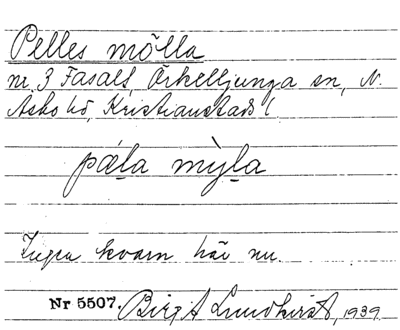 Pelles mölla
nr 3 Fasalt, Örkelljunga sn, N.
Åsbo hd, Kristianstads l
påla my̆la
Ingen kvarn här nu.
Nr 5507. Birgit Lundkvist, 1939